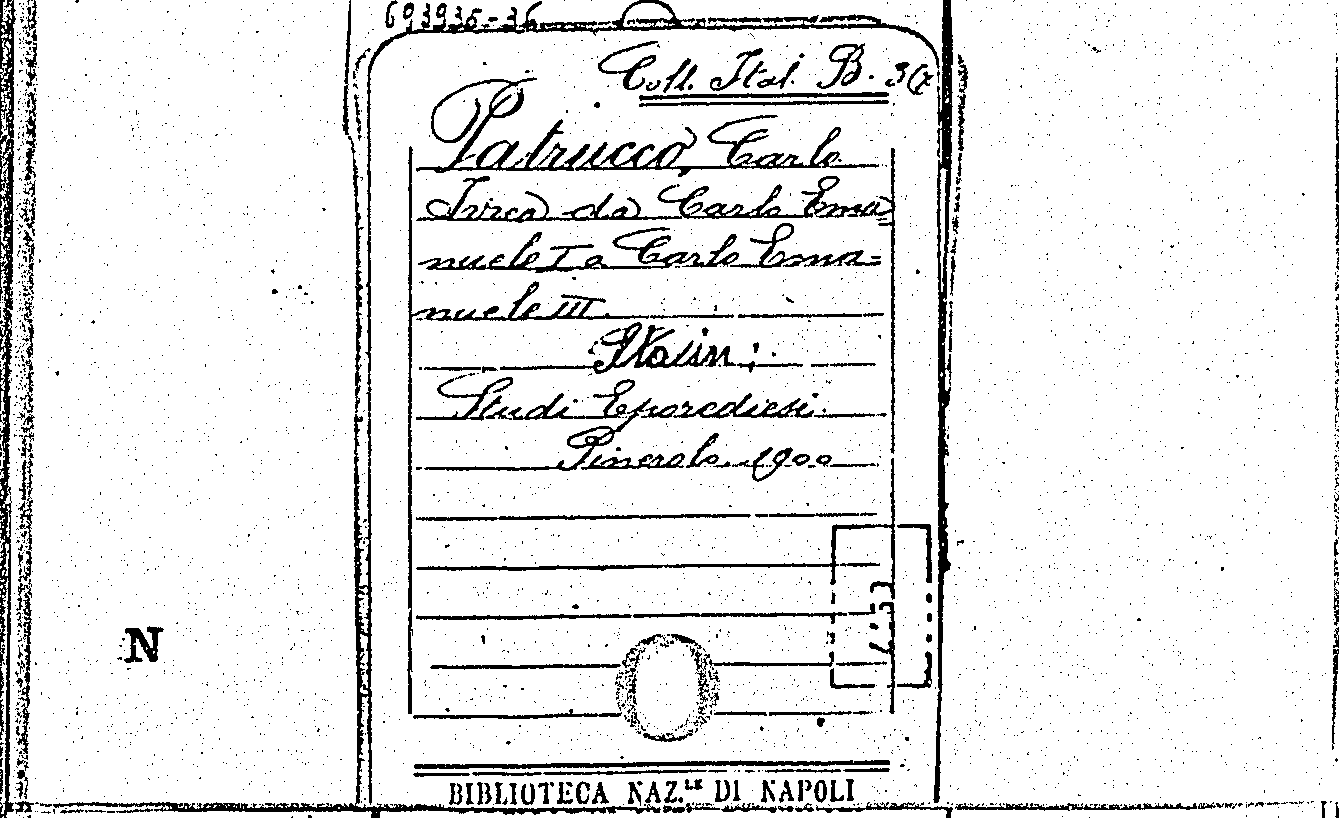 693935-36
Coll. Ital. B. 36
Patrucco, Carlo
Ivrea da Carlo Ema=
nuele I a Carlo Ema=
nuele III.
In
Studi Eporediesi.
Pinerolo 1900
N
BIBLIOTECA NAZ.LE DI NAPOLI